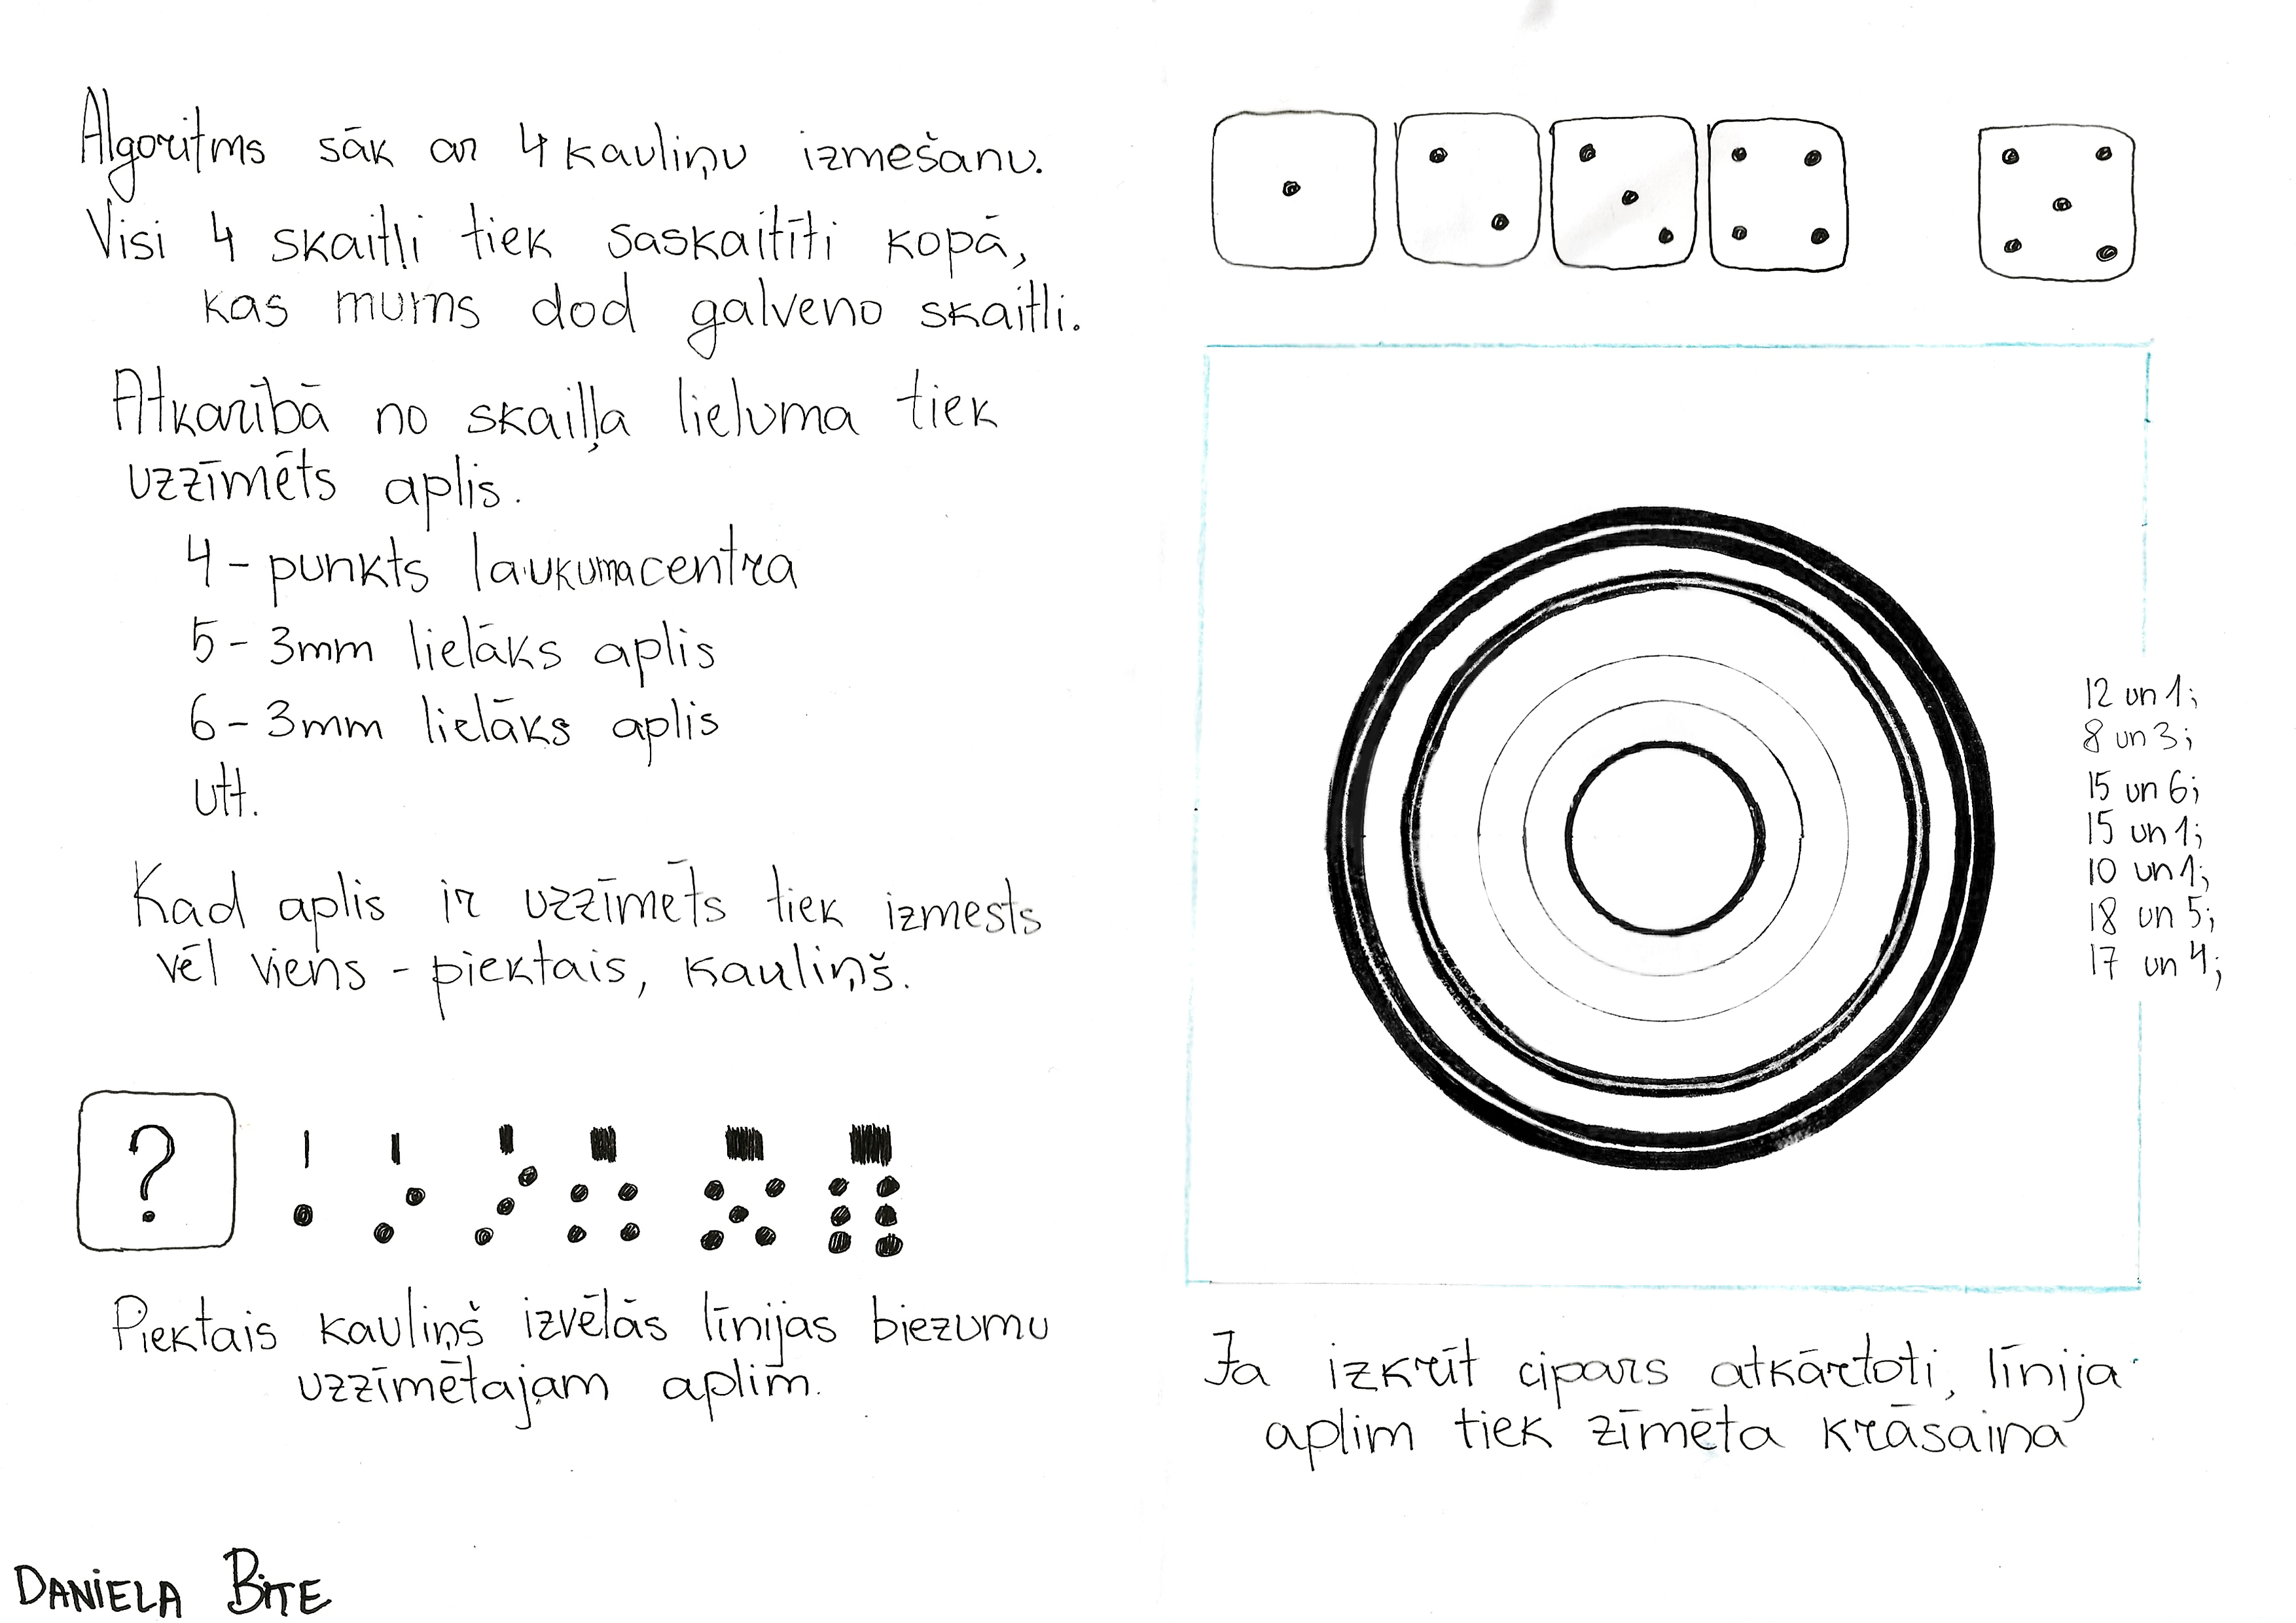 Algoritms sāk ar 4 kauliņu izmešanu.
Visi 4 skaitļi tiek saskaitīti kopā,
kas mums dod galveno skaitli.
Atkarībā no skaiļļa lieluma tiek
uzzīmēts aplis.
4 - punkts laukuma centra
5 - 3mm lielāks aplis
6 - 3mm lielāks aplis
utt.
Kad aplis ir uzzīmēts tiek izmests
vēl viens - piektais, kauliņš.
?
Piektais kauliņš izvēlās līnijas biezumu
uzzīmētajam aplim.
DANIELA BITE
12 un 1;
8 un 3;
15 un 6;
15 un 1;
10 un 1;
18 un 5;
17 un 4;
Ja izkrīt cipars atkārtoti, līnija
aplim tiek zīmēta krāsaina